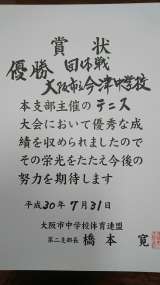 賞状
優勝 団体戦
大阪市立今津中学校
本支部主催のテニス
大会において優秀な成
績を収められましたので
その栄光をたたえ今後の
努力を期待します
平成30年7月31日
大阪市中学校体育連盟
第二支部長 橋本 寛